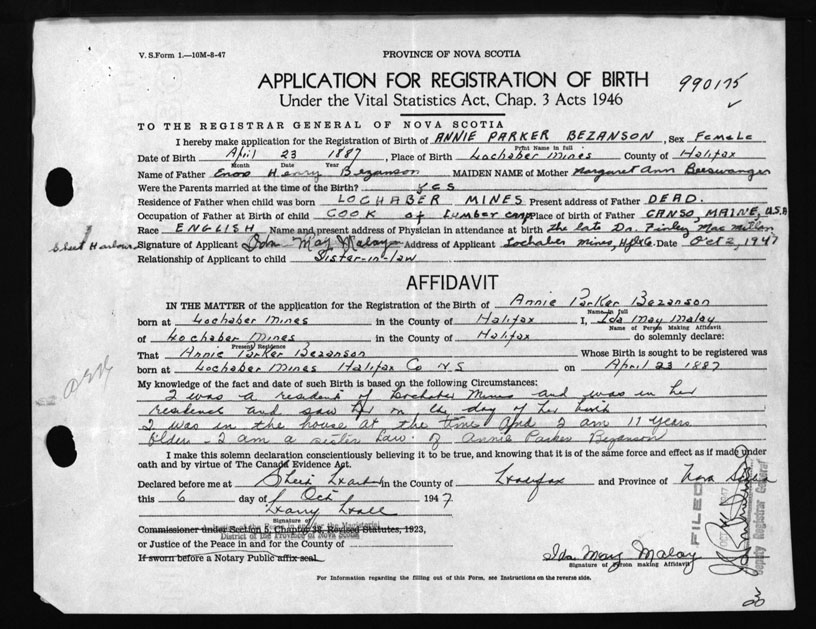 V. S. Form 1.—10M-8-47
PROVINCE OF NOVA SCOTIA
APPLICATION FOR REGISTRATION OF BIRTH
990175
Under the Vital Statistics Act, Chap. 3 Acts 1946
TO THE REGISTRAR GENERAL OF NOVA SCOTIA
I hereby make application for the Registration of Birth of ANNIE PARKER BEZANSON, Sex Female
Print Name in full
Date of Birth April 23 1887, Place of Birth Lochaber Mines County of Halifax
Month Date Year
Name of Father Enos Henry Bezanson MAIDEN NAME of Mother Margaret Ann Beeswanger
Were the Parents married at the time of the Birth? yes
Residence of Father when child was born LOCHABER MINES Present address of Father DEAD.
Occupation of Father at Birth of child COOK of Lumber camp Place of birth of Father CANSO, MAINE, U.S.A
Race ENGLISH Name and present address of Physician in attendance at birth the late Dr. Finley MacMillan
Sheet Harbour
Signature of Applicant Ida May Malay Address of Applicant Lochaber mines, Hfx Co. Date Oct 2, 1947
Relationship of Applicant to child Sister-in-law
AFFIDAVIT
IN THE MATTER of the application for the Registration of the Birth of Annie Parker Bezanson
Name in full
born at Lochaber Mines in the County of Halifax I, Ida May Malay
Name of Person Making Affidavit
of Lochaber Mines in the County of Halifax do solemnly declare:
Present Residence
That Annie Parker Bezanson Whose Birth is sought to be registered was
born at Lochaber Mines Halifax Co N.S on April 23 1887
My knowledge of the fact and date of such Birth is based on the following Circumstances:
I was a resident of Lochaber Mines and was in her
residence and saw her on the day of her birth
I was in the house at the time and I am 11 years
older - I am a sister Law of Annie Parker Bezanson
I make this solemn declaration conscientiously believing it to be true, and knowing that it is of the same force and effect as if made under
oath and by virtue of The Canada Evidence Act.
Declared before me at Sheet Harbour in the County of Halifax and Province of Nova Scotia
this 6 day of Oct 1947
Harry Hall
Signature of
Commissioner under Section 5, Chapter 38, Revised Statutes, 1923,
District of the Province of Nova Scotia
or Justice of the Peace in and for the County of
If sworn before a Notary Public affix seal
Ida May Malay
Signature of Person making Affidavit
FILED
Deputy Registrar General
For Information regarding the filling out of this Form, see Instructions on the reverse side.